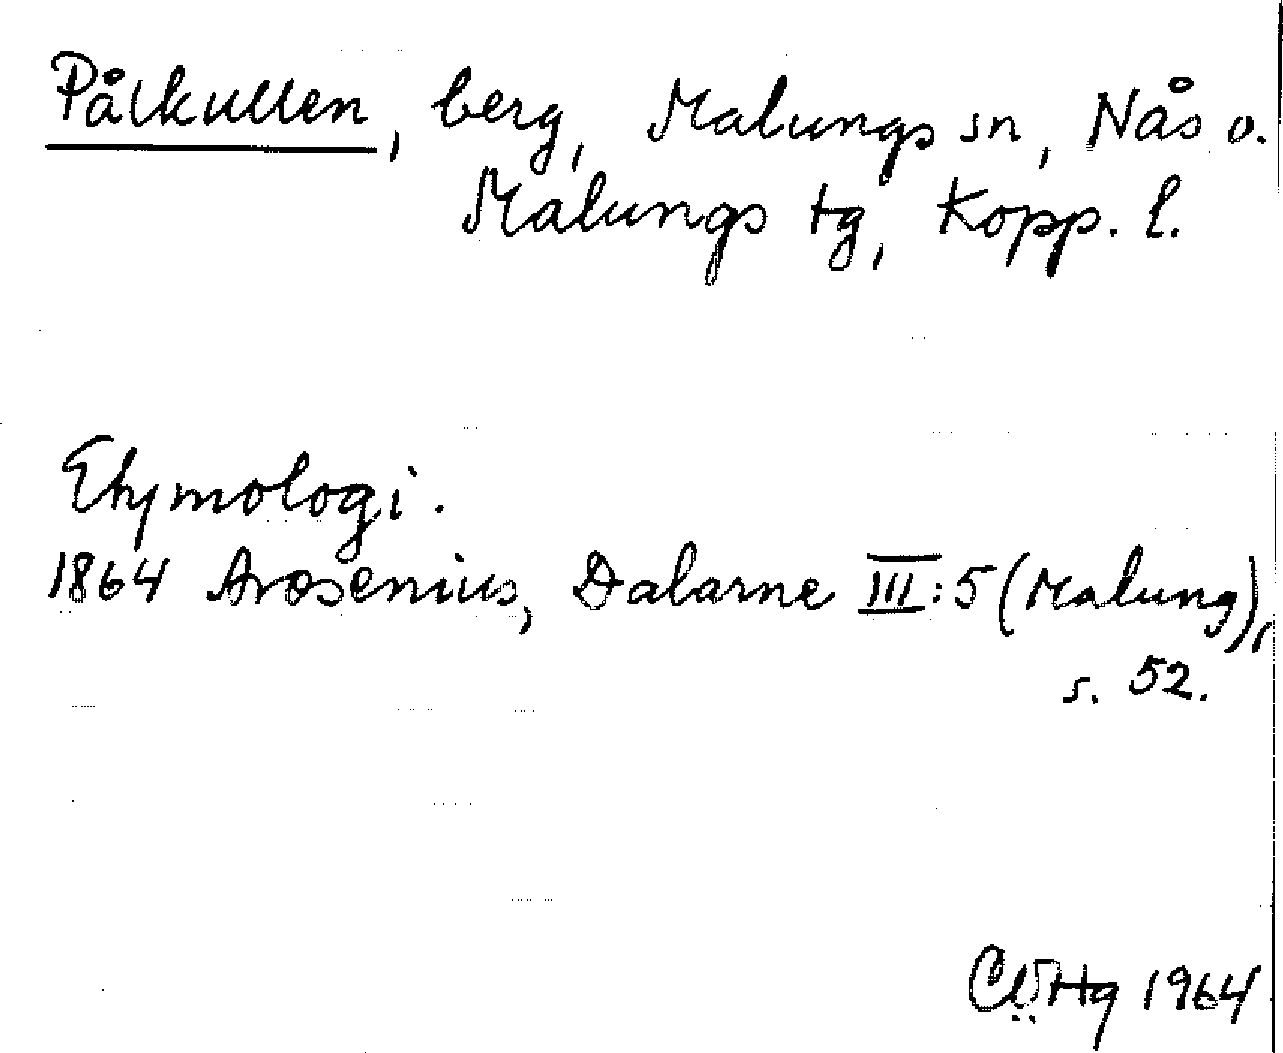 Pålkullen, berg, Malungs sn, Nås o.
Malungs tg, Kopp. l.
Etymologi.
1864 Arosenius, Dalarne III:5 (Malung),
s. 52.
1964